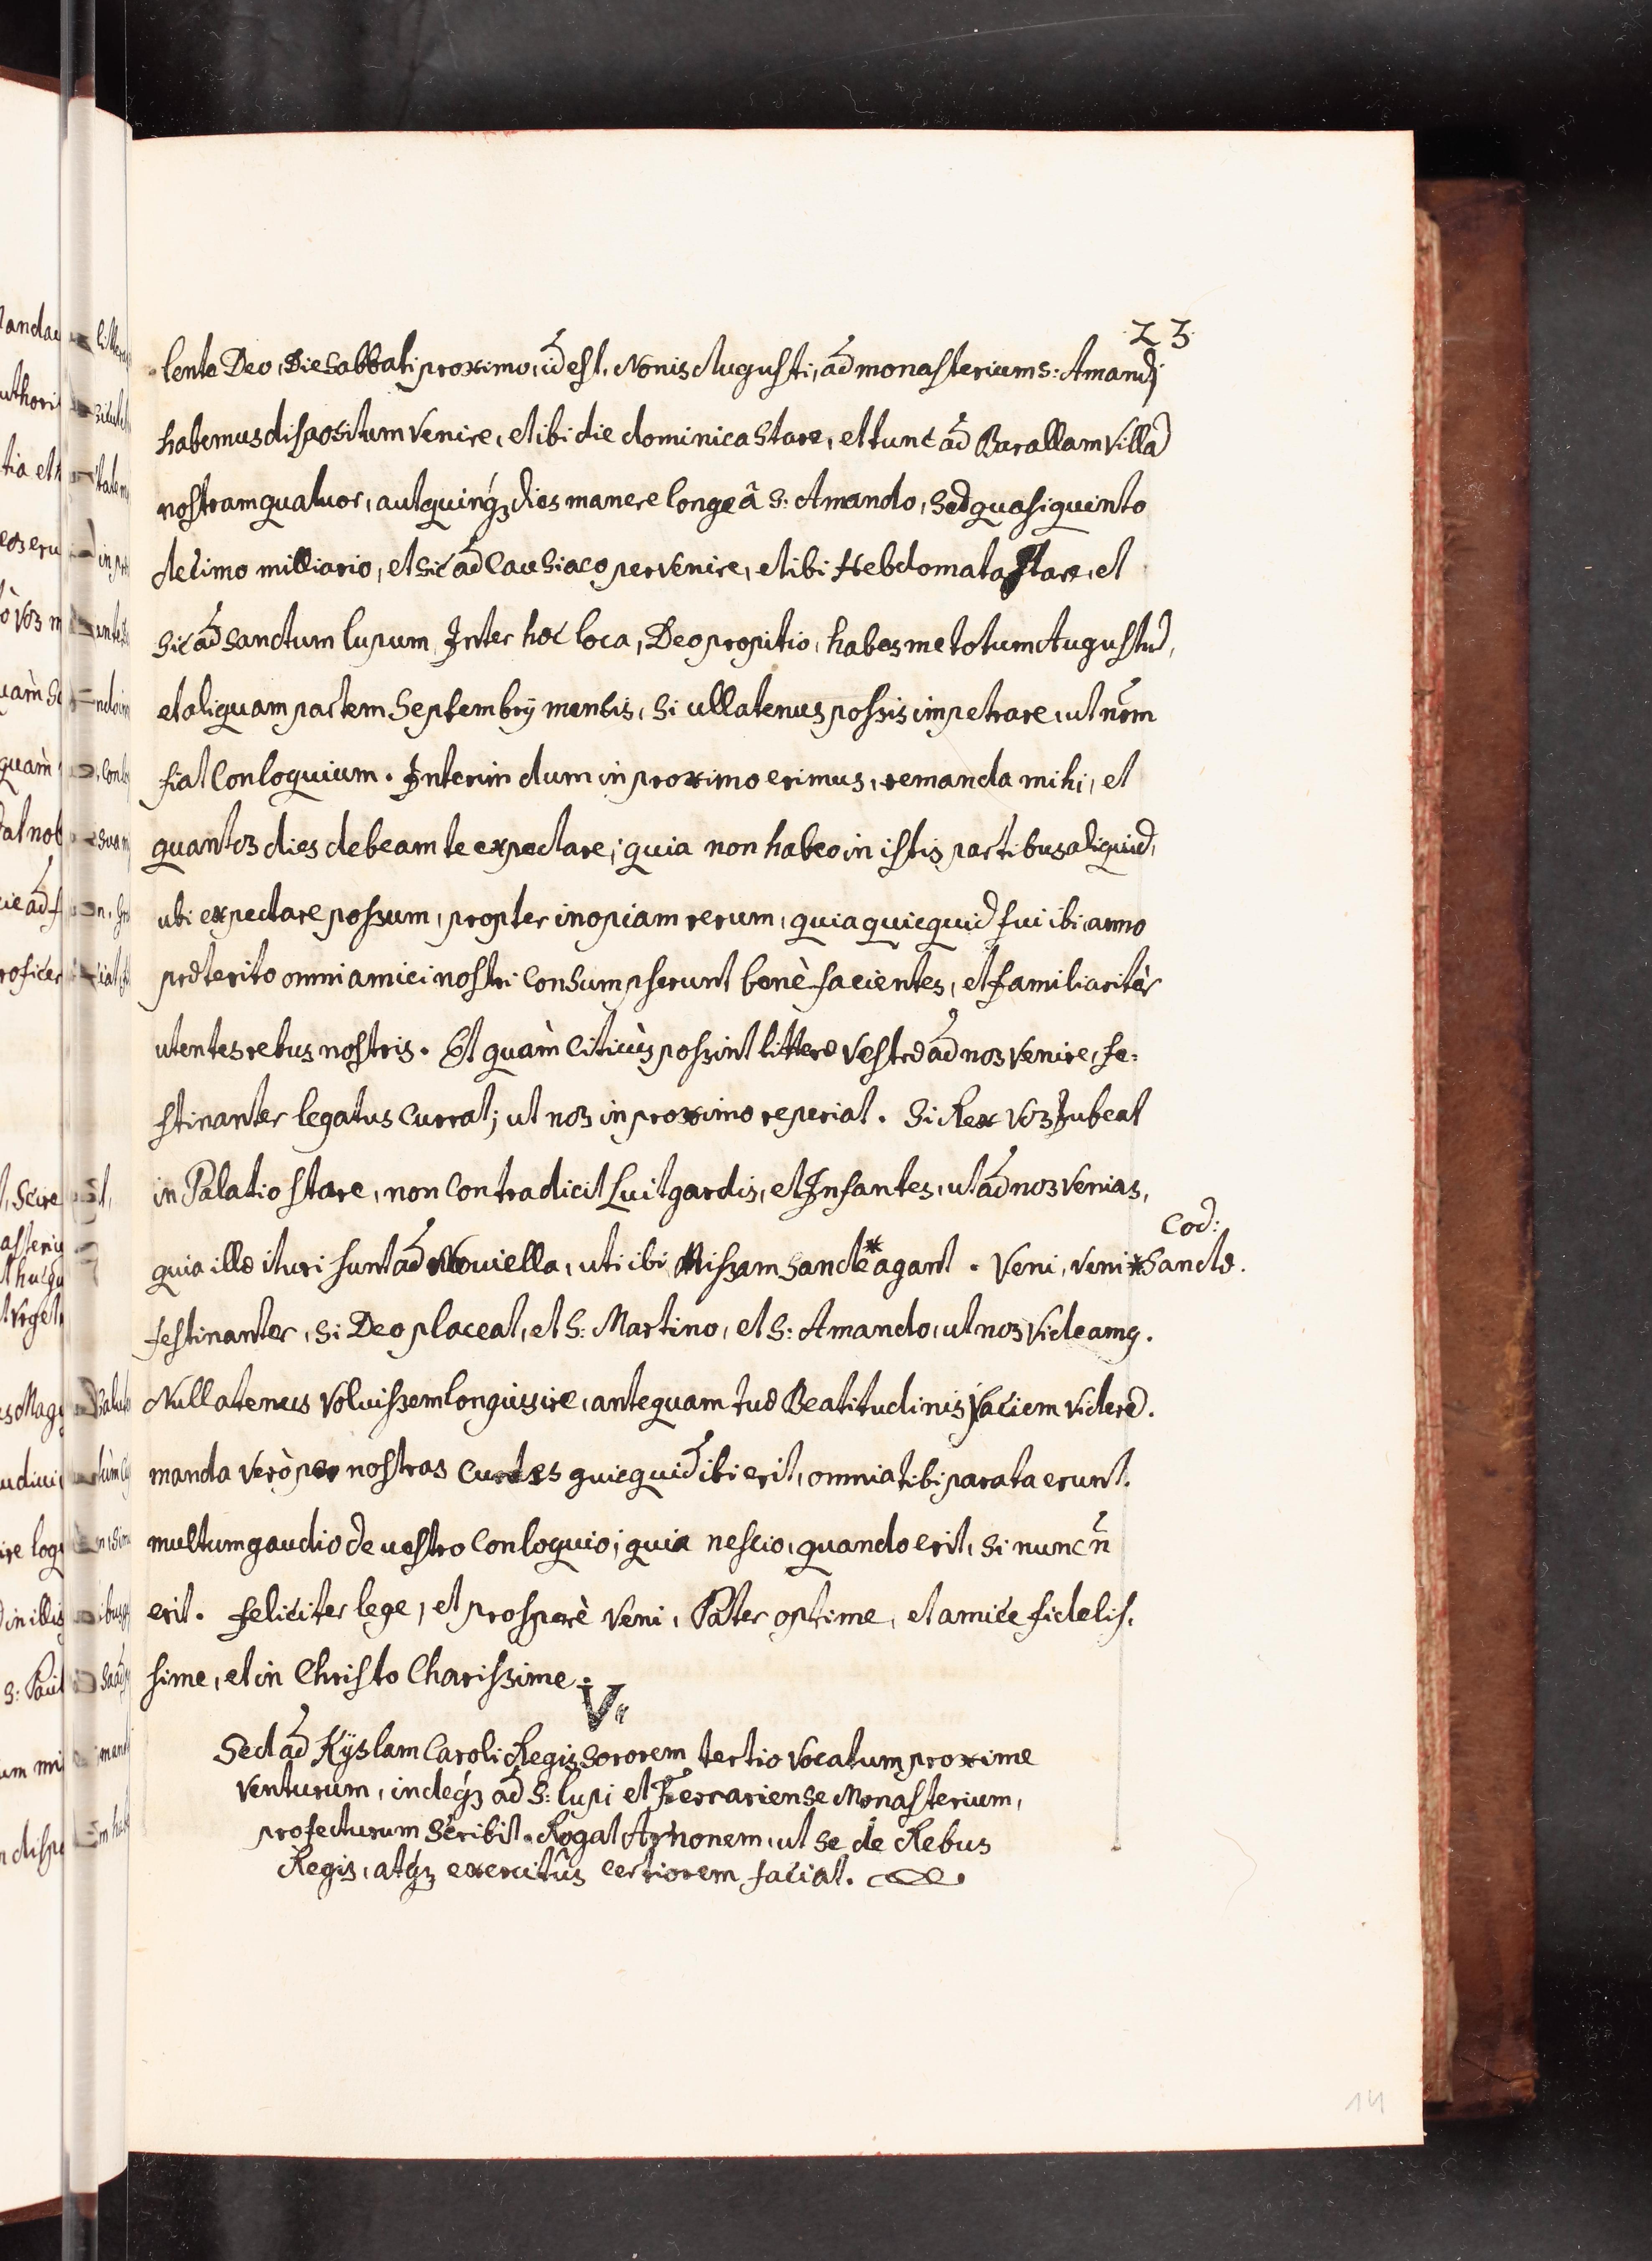 23.
lente Deo, Die Sabbati proximo, id est, Nonis Augusti, ad monasterium S: Amandj
habemus dispositum Venire, et ibi die dominica Stare, et tunc ad Barallam Villã
nostram quatuor, aut quinq́ʒ dies manere longe â S: Amando, Sed quasi quinto
decimo milliario, et sic ad Causiaco pervenire, et ibi Hebdomata Stare, et
Sic ad Sanctum lupum. Inter hoc loca, Deo propitio, habes me totum Augustũ,
et aliquam partem Septembrij mensis, Si ullatenus possis impetrare, ut nr̃m
fiat Conloquium. Interim dum in proximo erimus, remanda mihi, et
quantos dies debeam te expectare; quia non habeo in istis partibus aliquid,
ubi expectare possum, propter inopiam rerum, quia quicquid fui ibi anno
præterito omni amici nostri Consumpserunt benè facientes, et familiaritèr
utentes rebus nostris. Et quàm Citiùs possint litteræ Vestræ ad nos Venire, fe:
stinanter legatus Currat; ut nos in proximo reperiat. Si Rex Vos Jubeat
in Palatio Stare, non Contradicit Luitgardis, et Infantes, ut ad nos Venias,
quia illæ ituri sunt ad Noviella, uti ibi Missam Sancte* agant. Veni, Veni
Cod:
*Sanctæ.
festinanter, Si Deo placeat, et S: Martino, et S: Amando, ut nos Videamꝯ.
Nullatenus Voluissem longius ire, antequam tuæ Beatitudinis Faciem Viderẽ.
manda Verò per nostras Curtes quicquid ibi erit, omnia tibi parata erunt.
multum gaudio de uestro Conloquio; quia nescio, quando erit, Si nunc ñ
erit. feliciter lege, et prosperè Veni, Pater optime, et amice fidelis,
sime, et in Christo Charissime.
V.
Sed ad Kÿslam Caroli Regis Sororem tertio Vocatum proxime
Venturum, indeq́ʒ ad S: lupi et Ferrariense Monasterium,
profecturum Scribit. Rogat Arnonem, ut se de Rebus
Regis, atq́ʒ exercitûs certiorem faciat.
14